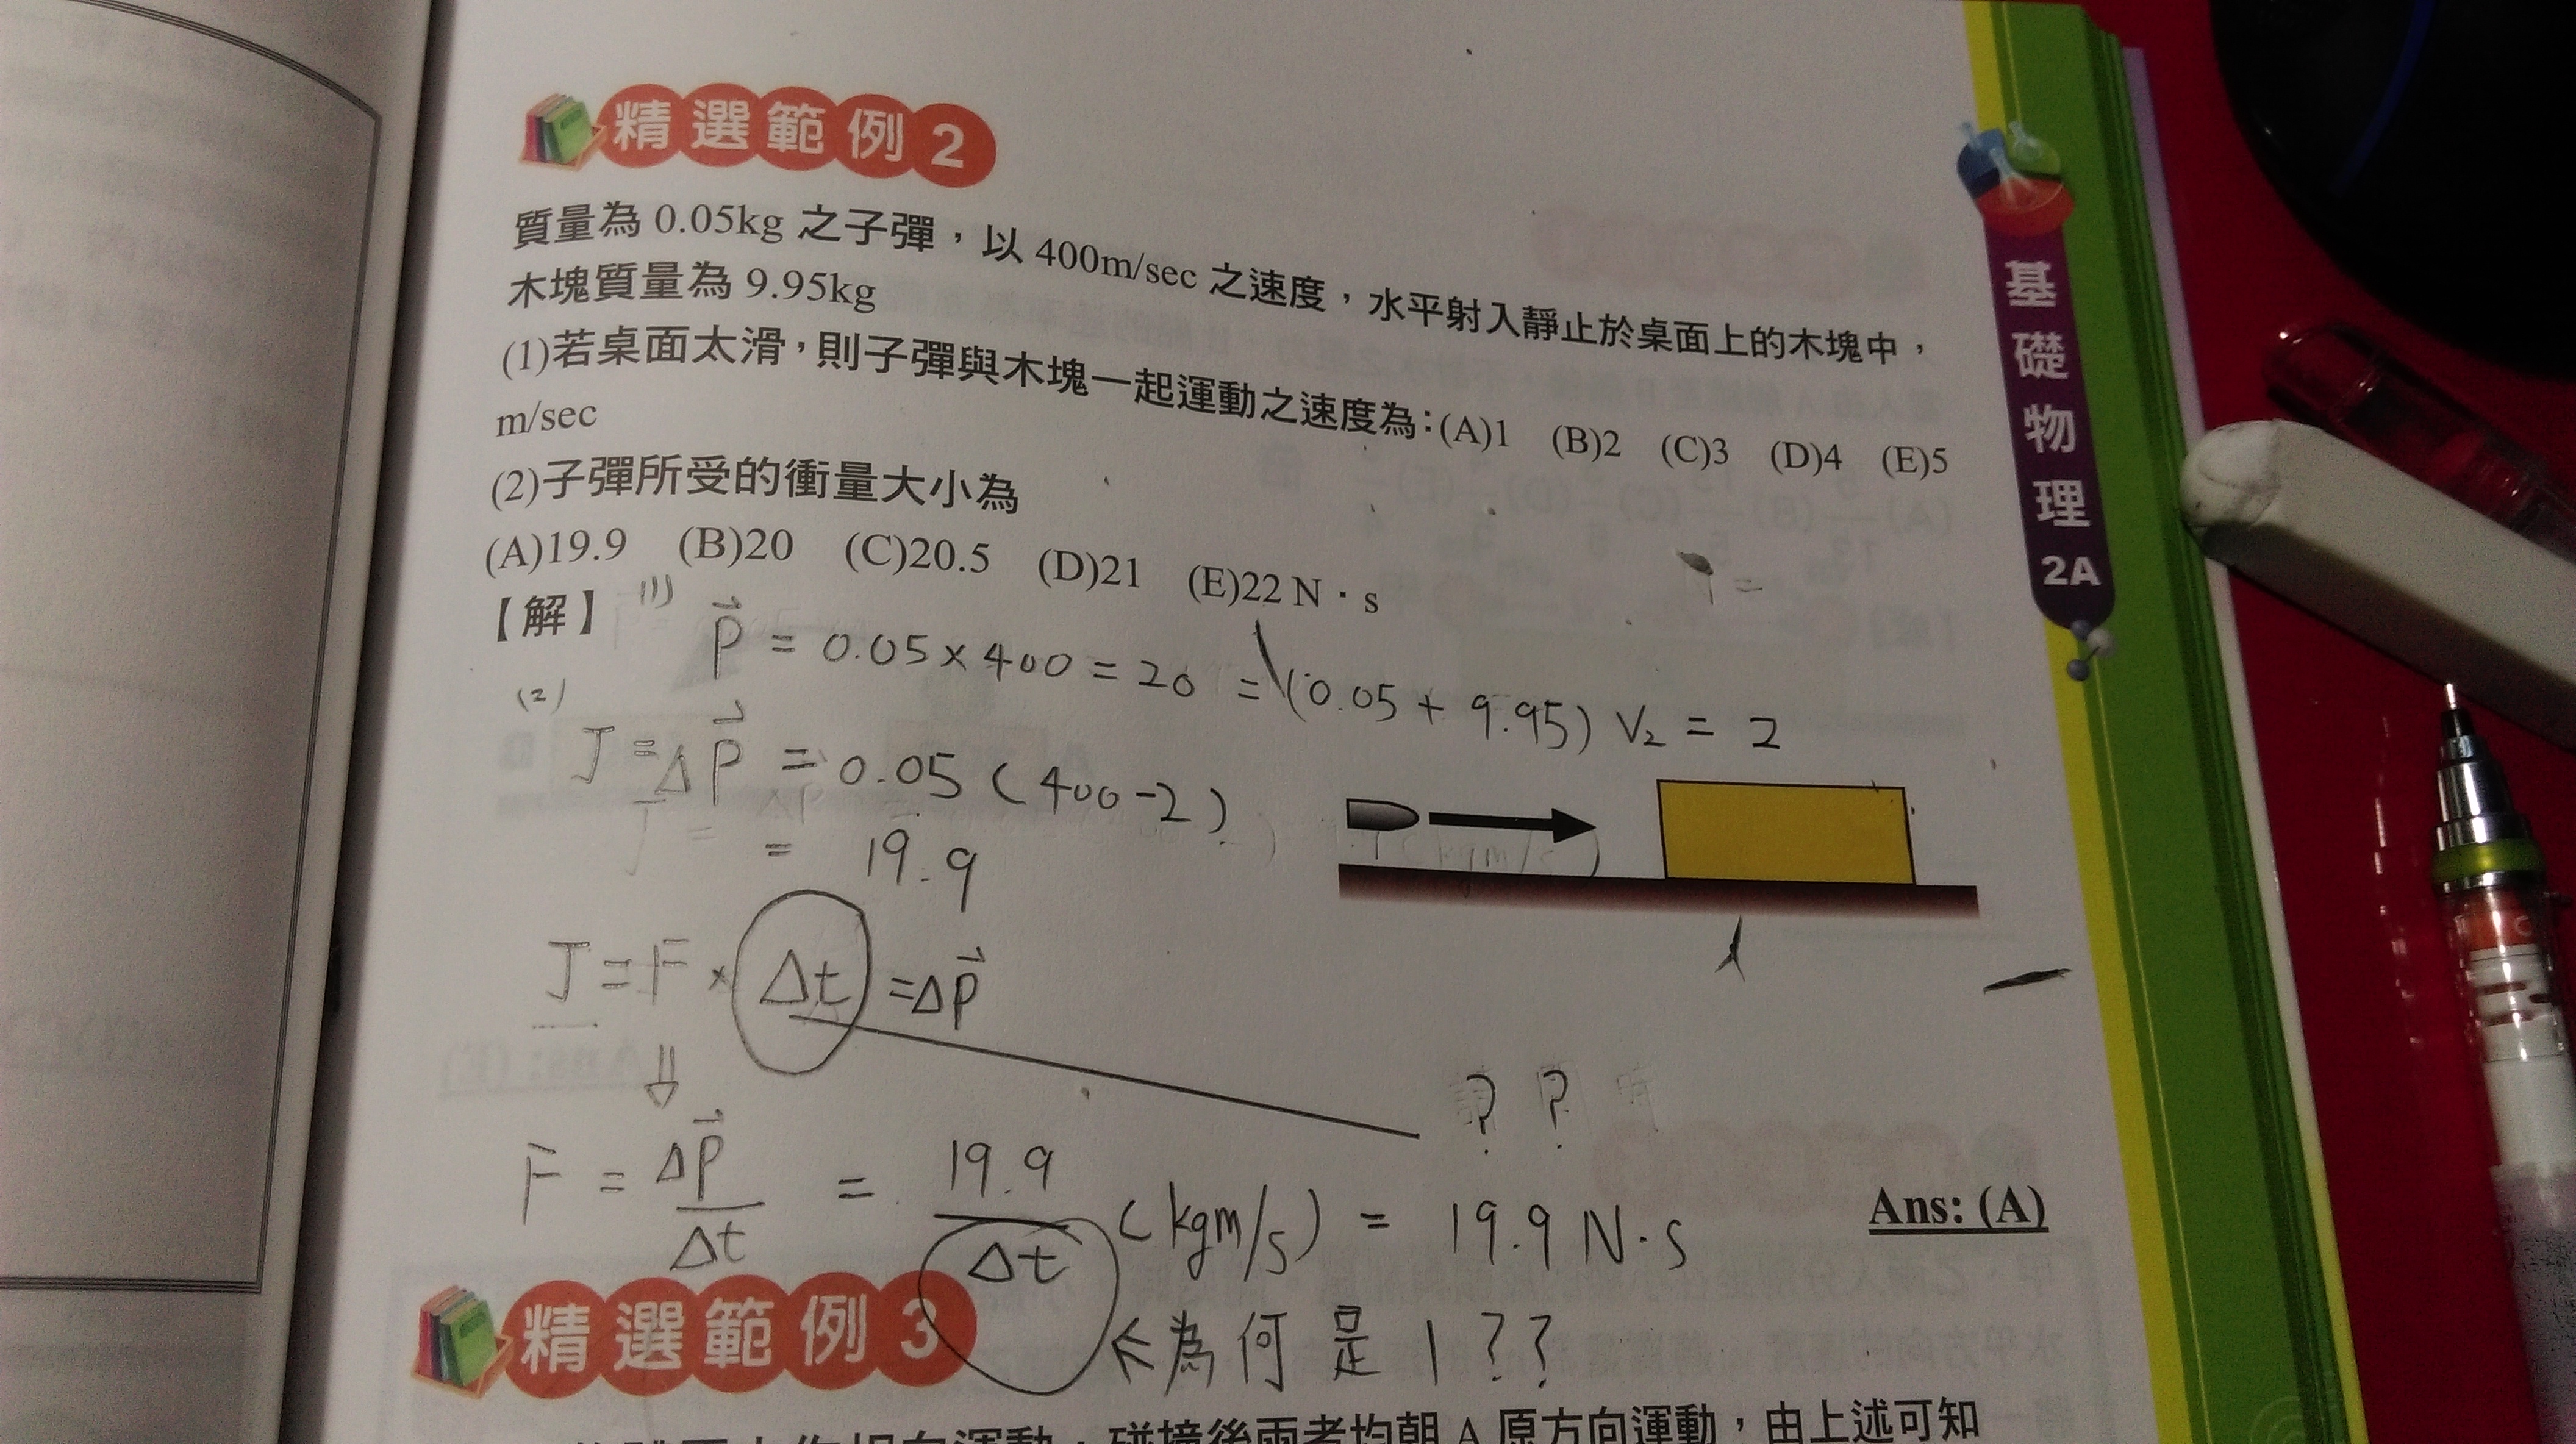 精選範例2
質量為 0.05kg 之子彈，以 400m/sec 之速度，水平射入靜止於桌面上的木塊中，
木塊質量為 9.95kg
(1)若桌面太滑，則子彈與木塊一起運動之速度為：(A)1 (B)2 (C)3 (D)4 (E)5
m/sec
(2)子彈所受的衝量大小為
(A)19.9 (B)20 (C)20.5 (D)21 (E)22 N．s
【解】 (1) P⃗ = 0.05×400 = 20 = (0.05 + 9.95) V₂ = 2
(2) J = ΔP⃗ = 0.05 (400-2)
= 19.9
J = F × Δt = ΔP⃗
⇓
? ?
F = ΔP⃗/Δt = 19.9/Δt (kgm/s) = 19.9 N·s
Ans: (A)
←為何是1??
精選範例3
碰撞後兩者均朝 A 原方向運動，由上述可知
基礎物理2A